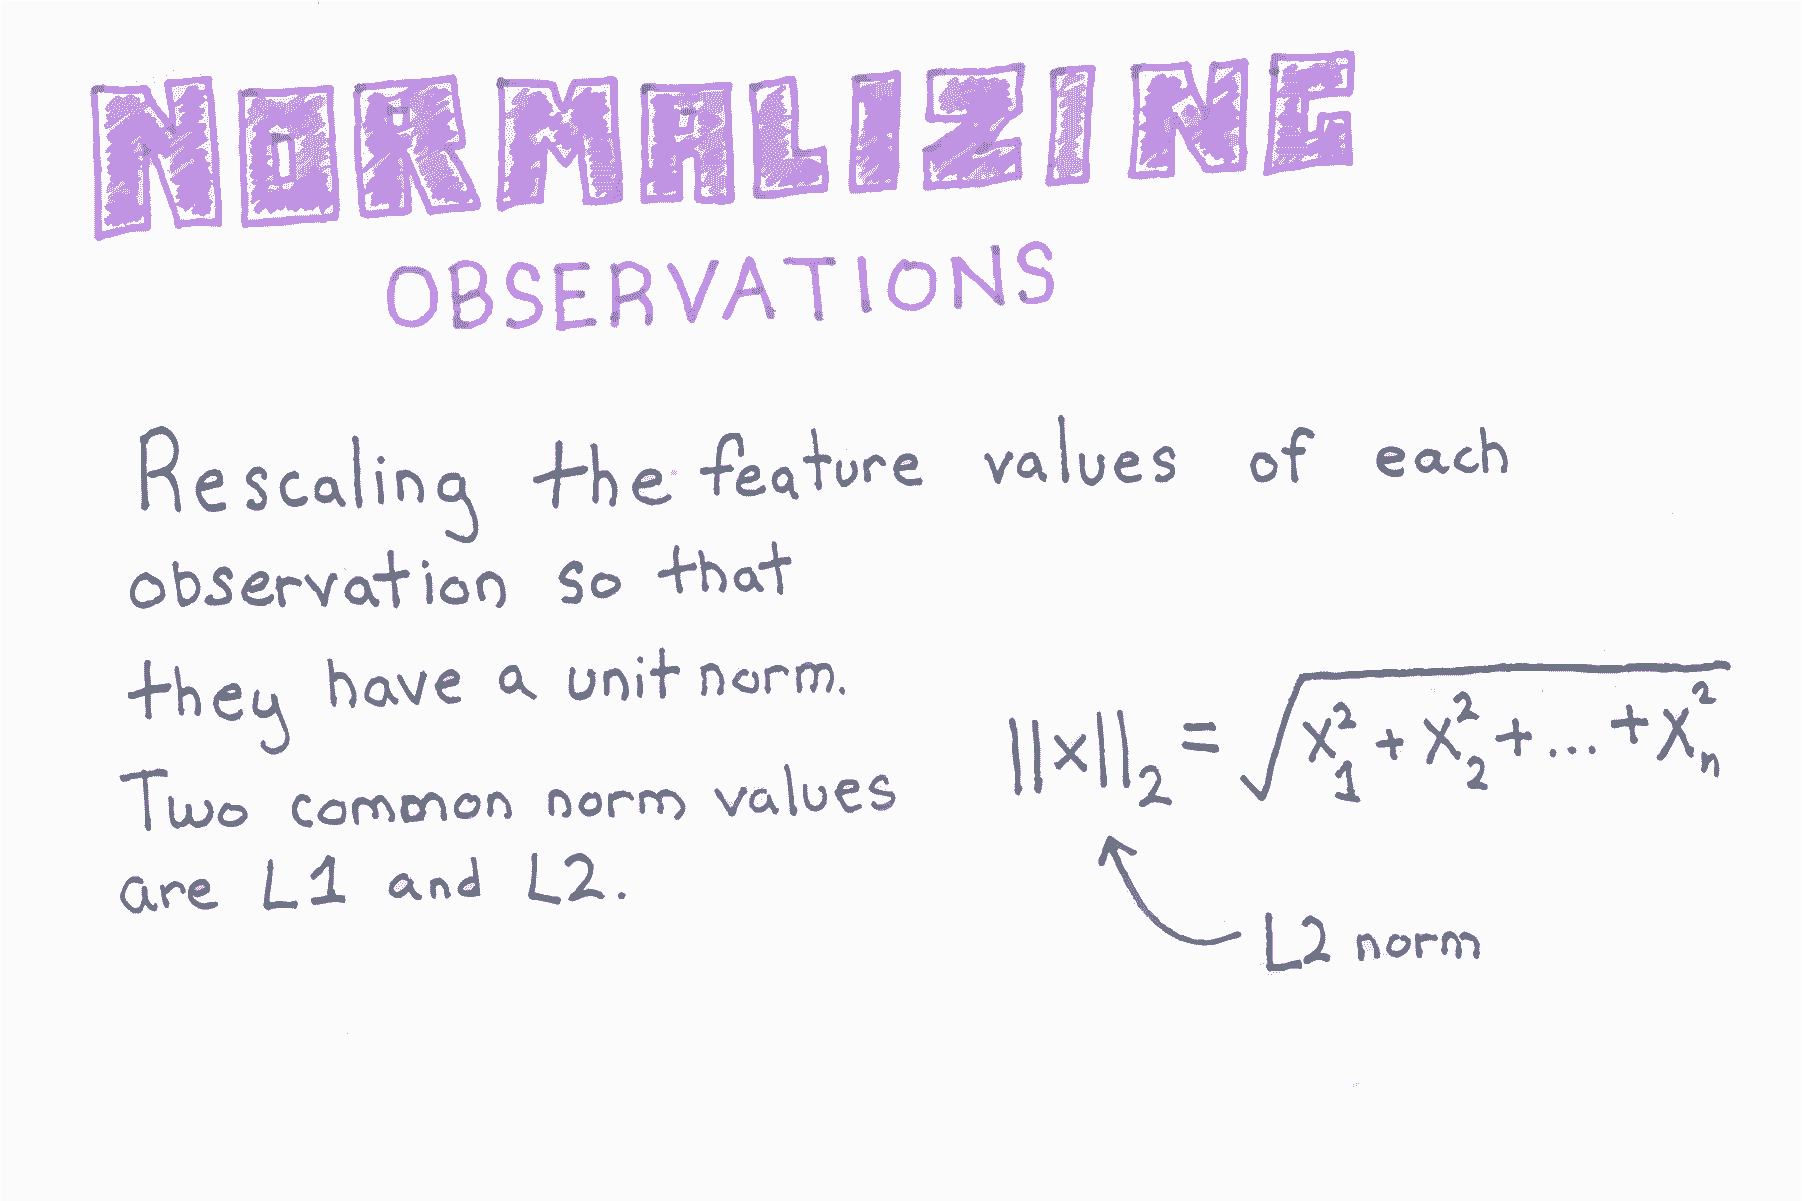 NORMALIZING
OBSERVATIONS
Rescaling the feature values of each
observation so that
they have a unit norm.
Two common norm values
are L1 and L2.
||x||₂ = √(x₁² + x₂² + ... + xₙ²)
L2 norm